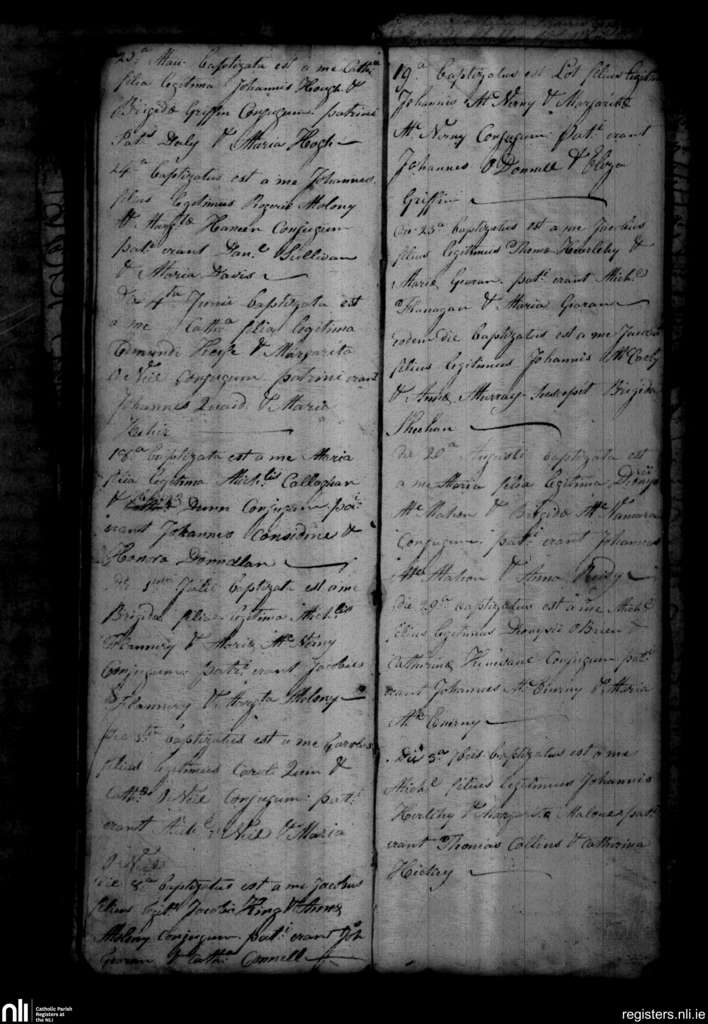 23a Maii baptizata est a me Catha
filia legitima Johannis Hough &
Brigidæ Griffin Conjugum patrini
Pats Daly & Maria Hogh
24a baptizatus est a me Johannes
filius legitimus Rogerii Molony
& Margtæ Conjugum
pati erant Danl Sullivan
& Maria Davis
Die 4ta Junii baptizata est
a me Catha filia legitima
Edmundi & Margarita
O Neil Conjugum patrini erant
Johannes & Maria
18a baptizata est a me Maria
filia legitima Michlis Callaghan
& Dunn Conjugum pati
erant Johannes Considine &
Honora Donnellan
Die Julii baptizata est a me
Brigida filia legitima Michlis
Flannery & Maria
Conjugum pati erant Jacobus
Flannery & Margta Molony
baptizatus est a me Carolus
filius legitimus Caroli Quin &
Cath O Neil Conjugum pati
erant O Neil & Maria
O Neil
Die 8a baptizatus est a me Jacobus
filius legts Jacobi King & Anna
Molony Conjugum pati erant Joh
& Catha Connell
19a baptizatus est Lot filius legitim
Johannis Mc Nerny & Margarita
Mc Nerny Conjugum pati erant
Johannes O Donnell & Eliza
Griffin
Die 25a baptizatus est a me Jacobus
filius legitimus Thoma &
Maria pati erant Michl
Flanagan & Maria
eodem die baptizatus est a me Jacobus
filius legitimus Johannis Mc Carty
& Anna Murray suscepit Brigida
Sheehan
die 20a Augusti baptizata est
a me Maria filia legitima Dionysii
Mc Mahon & Brigida Mc Namara
Conjugum pati erant Johannes
Mc Mahon & Anna Reidy
die 29a baptizatus est a me Michl
filius legitimus Dionysii O Brien &
Catherina Conjugum pati
erant Johannes Mc Enerny & Maria
Mc Enerny
Die 5a 7bris baptizatus est a me
Michl filius legitimus Johannis
Herlihy & Margarita Malone pati
erant Thomas Collins & Catherina
Hickey
nli
Catholic Parish
Registers at
the NLI
registers.nli.ie